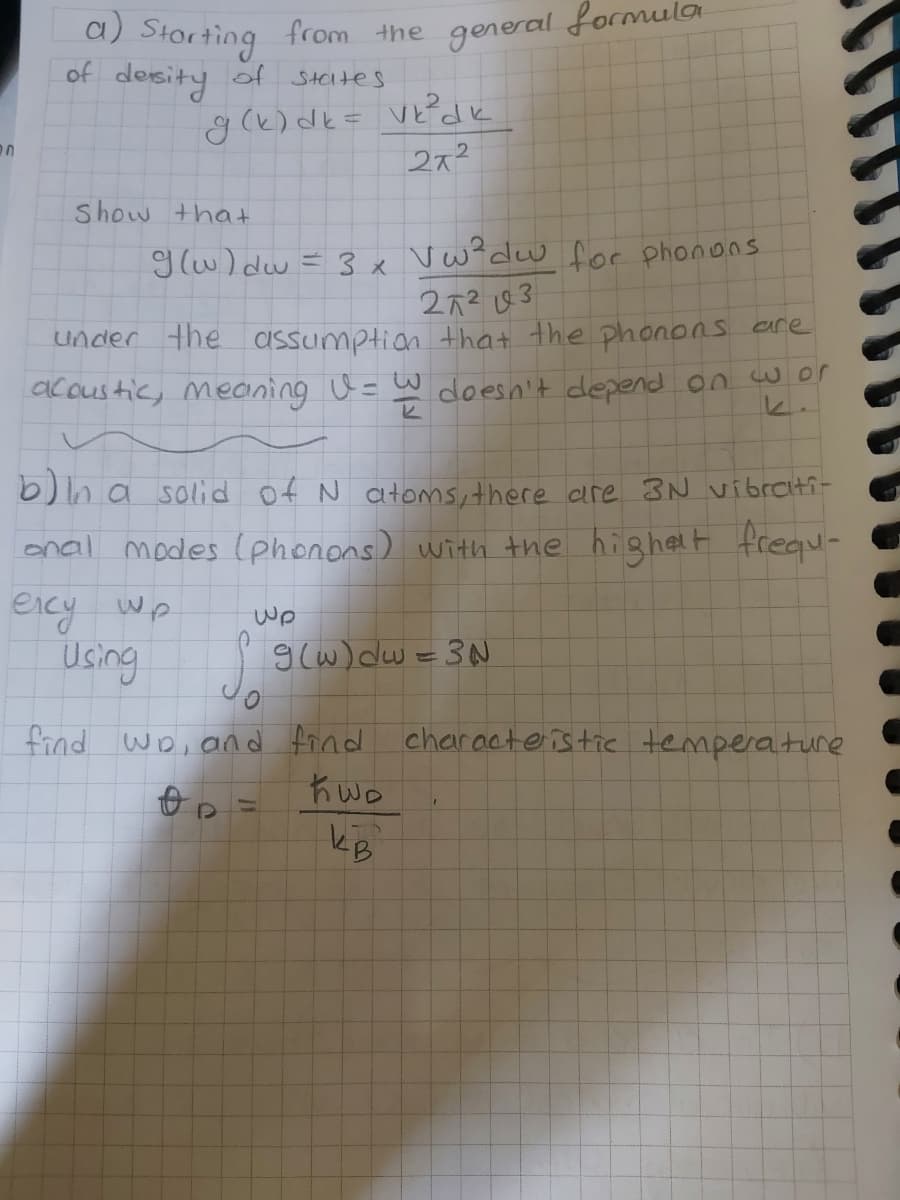 a) Starting from the general formula
of density of states
g(k)dk = Vk²dk / 2π²
show that
g(w)dw = 3 x Vw²dw / 2π² v³ for phonons
under the assumption that the phonons are
acoustic, meaning v = w/k doesn't depend on w or
k.
b) In a solid of N atoms, there are 3N vibrati-
onal modes (phonons) with the highest frequ-
ency wD
Using ∫₀^wD g(w)dw = 3N
find wD, and find characteristic temperature
θD = ħwD / kB .